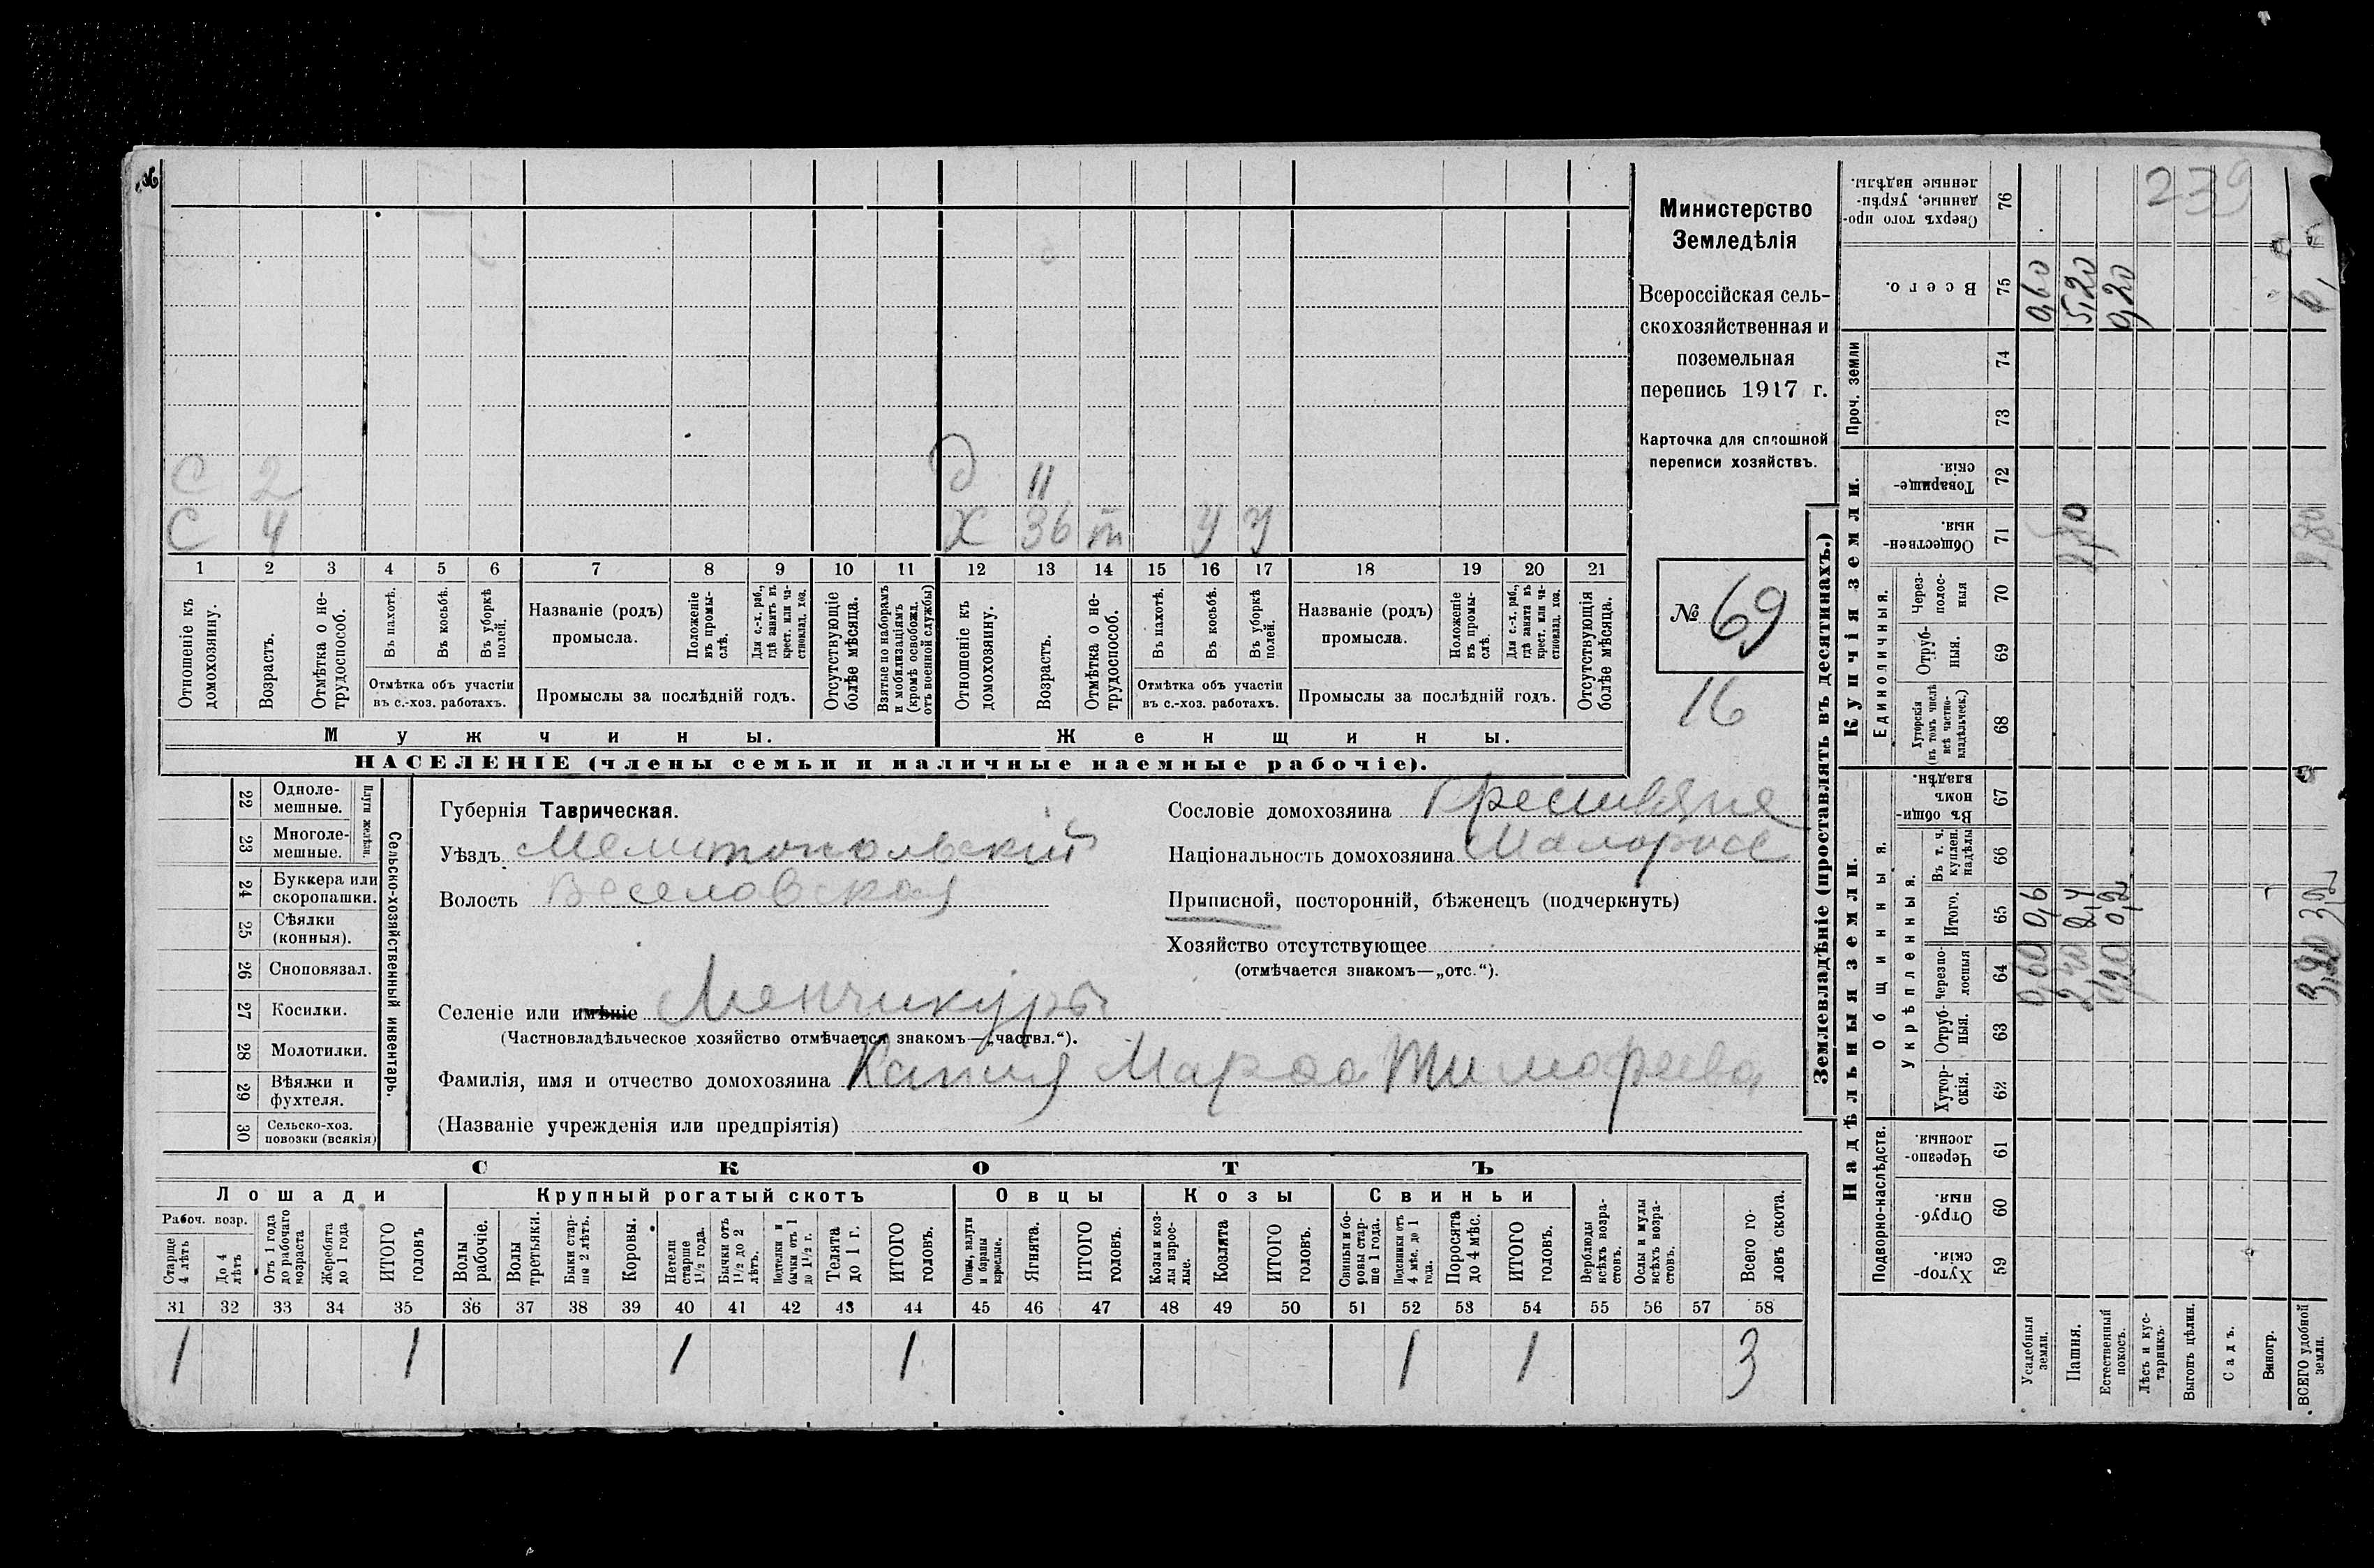 239
С 2 Д 11
С 4 Х 36 т У У
1 2 3 4 5 6 7 8 9 10 11 12 13 14 15 16 17 18 19 20 21
Отношеніе къ домохозяину.
Возрастъ.
Отмѣтка о не-
трудоспособ.
Въ пахотѣ.
Въ косьбѣ.
Въ уборкѣ полей.
Отмѣтка объ участіи
въ с.-хоз. работахъ.
Названіе (родъ)
промысла.
Положеніе въ промы-
слѣ.
Для с.-х. раб.,
гдѣ занятъ въ
крест. или ча-
стновлад. хоз.
Промыслы за послѣдній годъ.
Отсутствующіе
болѣе мѣсяца.
Взятые по наборамъ
и мобилизаціямъ
(кромѣ освобожд.
отъ военной службы)
Отношеніе къ
домохозяину.
Возрастъ.
Отмѣтка о не-
трудоспособ.
Въ пахотѣ.
Въ косьбѣ.
Въ уборкѣ
полей.
Отмѣтка объ участіи
въ с.-хоз. работахъ.
Названіе (родъ)
промысла.
Положеніе
въ промы-
слѣ.
Для с.-х. раб.,
гдѣ занята въ
крест. или ча-
стновлад. хоз.
Промыслы за послѣдній годъ.
Отсутствующія
болѣе мѣсяца.
Мужчины.
Женщины.
НАСЕЛЕНІЕ (члены семьи и наличные наемные рабочіе).
Министерство
Земледѣлія
Всероссійская сель-
скохозяйственная и
поземельная
перепись 1917 г.
Карточка для сплошной
переписи хозяйствъ.
№ 69
16
22 Одноле-
мешные.
23 Многоле-
мешные.
Плуги желѣзн.
24 Буккера или
скоропашки.
25 Сѣялки
(конныя).
26 Сноповязал.
27 Косилки.
28 Молотилки.
29 Вѣялки и
фухтеля.
30 Сельско-хоз.
повозки (всякія)
Сельско-хозяйственный инвентарь.
Губернія Таврическая.
Уѣздъ Мелитопольскій
Волость Веселовская
Селеніе или имѣніе Менчикуры
(Частновладѣльческое хозяйство отмѣчается знакомъ—„частвл.“).
Фамилія, имя и отчество домохозяина Капия Марфа Тимофеева
(Названіе учрежденія или предпріятія)
Сословіе домохозяина Крестьяне
Національность домохозяина Малоросс
Приписной, посторонній, бѣженецъ (подчеркнуть)
Хозяйство отсутствующее
(отмѣчается знакомъ—„отс.“).
СКОТЪ
Лошади
Крупный рогатый скотъ
Овцы
Козы
Свиньи
Рабоч. возр.
Старше
4 лѣтъ
До 4
лѣтъ
Отъ 1 года
до рабочаго
возраста
Жеребята
до 1 года
ИТОГО
головъ
Волы
рабочіе.
Волы
третьяки.
Быки стар-
ше 2 лѣтъ.
Коровы.
Нетели
старше
1½ года.
Бычки отъ
1½ до 2
лѣтъ.
Подтелки и
бычки отъ 1
до 1½ г.
Телята
до 1 г.
ИТОГО
головъ.
Овцы, валухи
и бараны
взрослые.
Ягнята.
ИТОГО
головъ.
Козы и коз-
лы взрос-
лые.
Козлята
ИТОГО
головъ.
Свиньи и бо-
ровы стар-
ше 1 года.
Подсвинки отъ
4 мѣс. до 1
года.
Поросята
до 4 мѣс.
ИТОГО
головъ.
Верблюды
всѣхъ возра-
стовъ.
Ослы и мулы
всѣхъ возра-
стовъ.
Всего го-
ловъ скота.
31 32 33 34 35 36 37 38 39 40 41 42 43 44 45 46 47 48 49 50 51 52 53 54 55 56 57 58
1 1 1 1 1 1 3
Землевладѣніе (проставлять въ десятинахъ.)
Купчія земли.
Надѣльныя земли.
Проч. земли
Единоличныя.
Общинныя.
Укрѣпленныя.
Подворно-наслѣдств.
Сверхъ того про-
данные, укрѣп-
ленные надѣлы. 76
Всего. 75 0,60 5,20 0,20 6,
74
73
Товарище-
скія. 72
Обществен-
ныя. 71 2,80 2,80
Через-
полос-
ныя 70
Отруб-
ныя. 69
Хуторскія
(въ томъ числѣ
всѣ частно-
владѣльческ.) 68
Въ общи-
номъ
владѣн. 67
Въ т. ч.
куплен.
надѣлы 66
Итого. 65 0,6 2,4 0,2 3,2
Черезпо-
лосныя 64 0,60 2,40 0,20 3,20
Отруб-
ныя. 63
Хутор-
скія. 62
Черезпо-
лосныя. 61
Отруб-
ныя. 60
Хутор-
скія. 59
Усадебныя
земли.
Пашня.
Естественный
покосъ.
Лѣсъ и кус-
тарникъ.
Выгонъ цѣлин.
Садъ.
Виногр.
ВСЕГО удобной
земли.